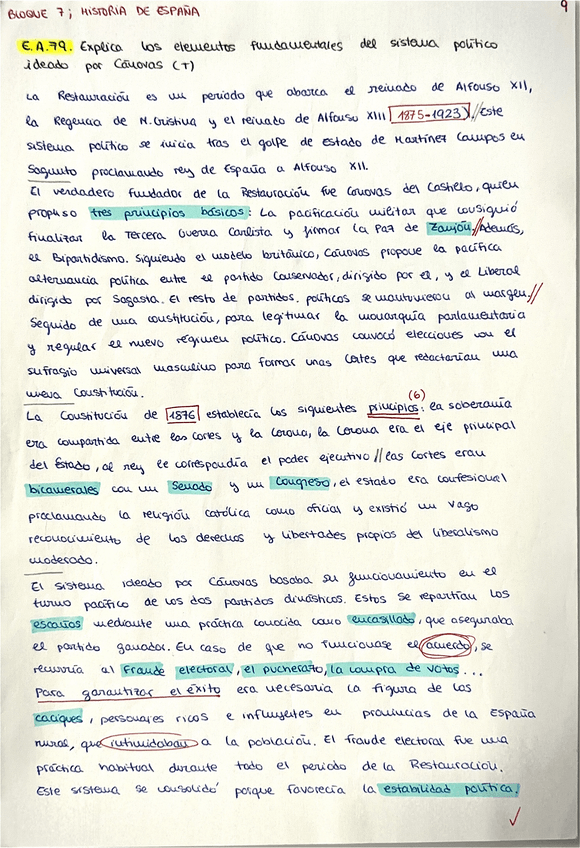 BLOQUE 7; HISTORIA DE ESPAÑA
9
E.A.79. Explica los elementos fundamentales del sistema político
ideado por Cánovas (T)
La Restauración es un periodo que abarca el reinado de Alfonso XII,
la Regencia de M.Cristina y el reinado de Alfonso XIII (1875-1923).//Este
sistema político se inicia tras el golpe de Estado de Martínez Campos en
Sagunto proclamando rey de España a Alfonso XII.
El verdadero fundador de la Restauración fue Cánovas del Castillo, quien
propuso tres principios básicos: La pacificación militar que consiguió
finalizar la Tercera Guerra Carlista y firmar la Paz de Zanjón.//Además,
el Bipartidismo. Siguiendo el modelo británico, Cánovas propone la pacífica
alternancia política entre el partido Conservador, dirigido por él, y el Liberal
dirigido por Sagasta. El resto de partidos políticos se mantuvieron al margen.//
Seguido de una constitución, para legitimar la monarquía parlamentaria
y regular el nuevo régimen político. Cánovas convocó elecciones con el
sufragio universal masculino para formar unas Cortes que redactarían una
nueva Constitución.
La Constitución de 1876 establecía los siguientes principios: (6) la soberanía
era compartida entre las cortes y la Corona, la Corona era el eje principal
del Estado, al rey le correspondía el poder ejecutivo // las Cortes eran
bicamerales con un Senado y un Congreso, el estado era confesional
proclamando la religión católica como oficial y existió un vago
reconocimiento de los derechos y libertades propios del liberalismo
moderado.
El sistema ideado por Cánovas basaba su funcionamiento en el
turno pacífico de los dos partidos dinásticos. Estos se repartían los
escaños mediante una práctica conocida como encasillado, que aseguraba
el partido ganador. En caso de que no funcionase el acuerdo, se
recurría al fraude electoral, el pucherazo, la compra de votos...
Para garantizar el éxito era necesaria la figura de los
caciques, personajes ricos e influyentes en provincias de la España
rural, que intimidaban a la población. El fraude electoral fue una
práctica habitual durante todo el periodo de la Restauración.
Este sistema se consolidó porque favorecía la estabilidad política.